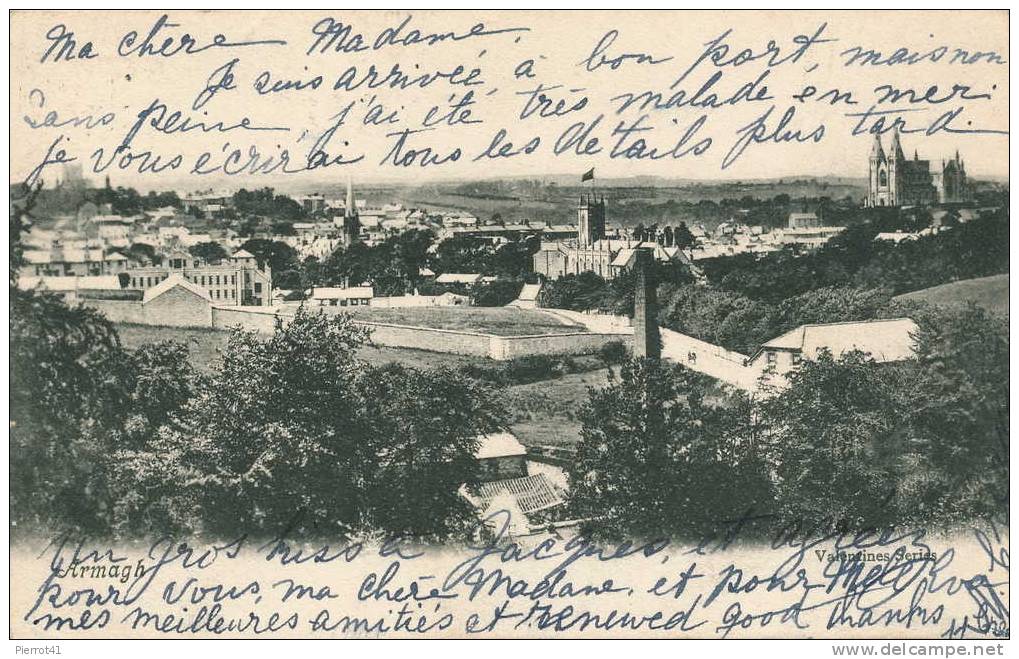 Ma chère Madame,
Je suis arrivée à bon port, mais non
sans peine, j'ai été très malade en mer.
Je vous écrirai tous les détails plus tard.
Un gros kiss à Jacques, et agréez
Armagh
Valentines Series
pour vous, ma chère Madame, et pour Melle
mes meilleures amitiés et renewed good thanks
Pierrot41
www.delcampe.net